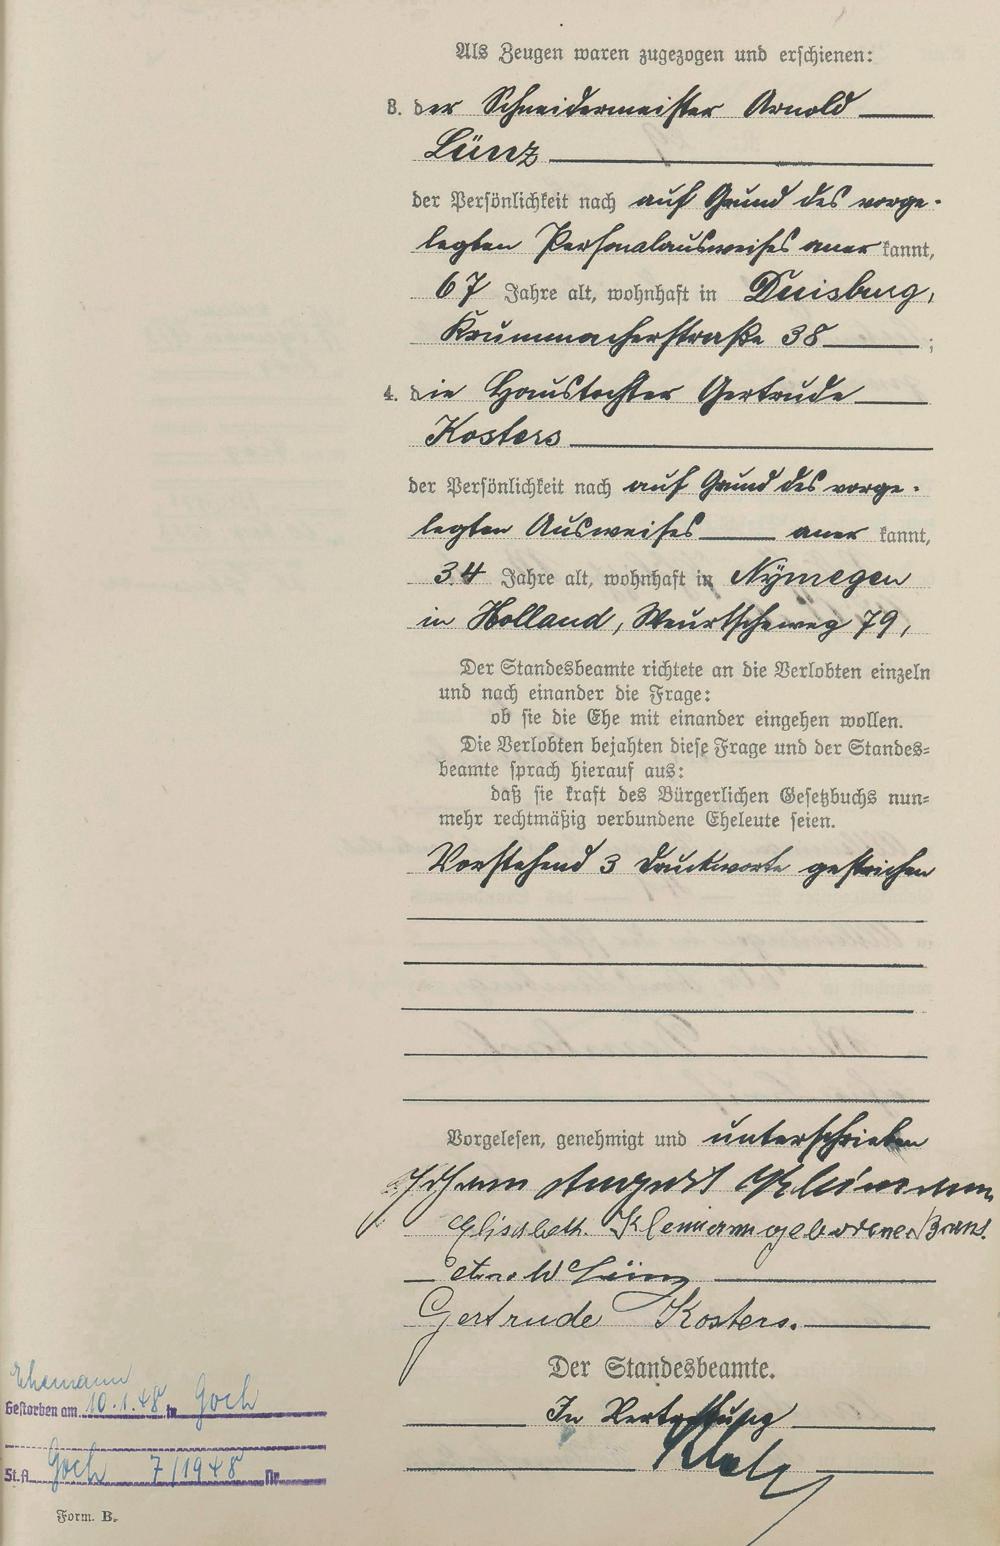 Als Zeugen waren zugezogen und erschienen:
3. der Schneidermeister Arnold
Lünz
der Persönlichkeit nach auf Grund des vorge-
legten Personalausweises aner kannt,
67 Jahre alt, wohnhaft in Duisburg,
Krummacherstraße 38 ;
4. die Haustochter Gertrude
Kosters
der Persönlichkeit nach auf Grund des vorge-
legten Ausweises aner kannt,
34 Jahre alt, wohnhaft in Nÿmegen
in Holland, Weurtscheweg 79,
Der Standesbeamte richtete an die Verlobten einzeln
und nach einander die Frage:
ob sie die Ehe mit einander eingehen wollen.
Die Verlobten bejahten diese Frage und der Standes-
beamte sprach hierauf aus:
daß sie kraft des Bürgerlichen Gesetzbuchs nun-
mehr rechtmäßig verbundene Eheleute seien.
Vorstehend 3 Druckworte gestrichen
Vorgelesen, genehmigt und unterschrieben
Johann August Kleinmann
Elisabeth. Kleinmann geborene
Arnold Lünz
Gertrude Kosters.
Der Standesbeamte.
In Vertretung
Ehemann
Gestorben am 10.1.48 in Goch
St.A. Goch 7/1948 Nr
Form. B.